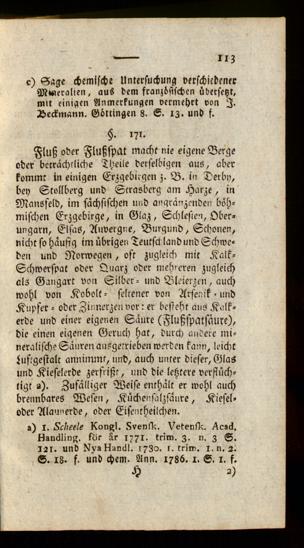 113
c) Sage chemische Untersuchung verschiedener
Mineralien, aus dem französischen übersetzt,
mit einigen Anmerkungen vermehrt von J.
Beckmann. Göttingen 8. S. 13. und f.
§. 171.
Fluß oder Flußspat macht nie eigene Berge
oder beträchtliche Theile derselbigen aus, aber
kommt in einigen Erzgebirgen z. B. in Derby,
bey Stollberg und Strasberg am Harze, in
Mansfeld, im sächsischen und angränzenden böh-
mischen Erzgebirge, in Glaz, Schlesien, Ober-
ungarn, Elsas, Auvergne, Burgund, Schonen,
nicht so häufig im übrigen Teutschland und Schwe-
den und Norwegen, oft zugleich mit Kalk-
Schwerspat oder Quarz oder mehreren zugleich
als Gangart von Silber- und Bleierzen, auch
wohl von Kobolt- seltener von Arsenik- und
Kupfer- oder Zinnerzen vor: er besteht aus Kalk-
erde und einer eigenen Säure (Flußspatsäure),
die einen eigenen Geruch hat, durch andere mi-
neralische Säuren ausgetrieben werden kann, leicht
Luftgestalt annimmt, und, auch unter dieser, Glas
und Kieselerde zerfrißt, und die letztere verflüch-
tigt a). Zufälliger Weise enthält er wohl auch
brennbares Wesen, Küchensalzsäure, Kiesel-
oder Alaunerde, oder Eisentheilchen.
a) 1. Scheele Kongl. Svensk. Vetensk. Acad.
Handling. för år 1771. trim. 3. n. 3 S.
121. und Nya Handl. 1780. 1. trim. 1. n. 2.
S. 18. f. und chem. Ann. 1786. 1. S. 1. f.
H 2)